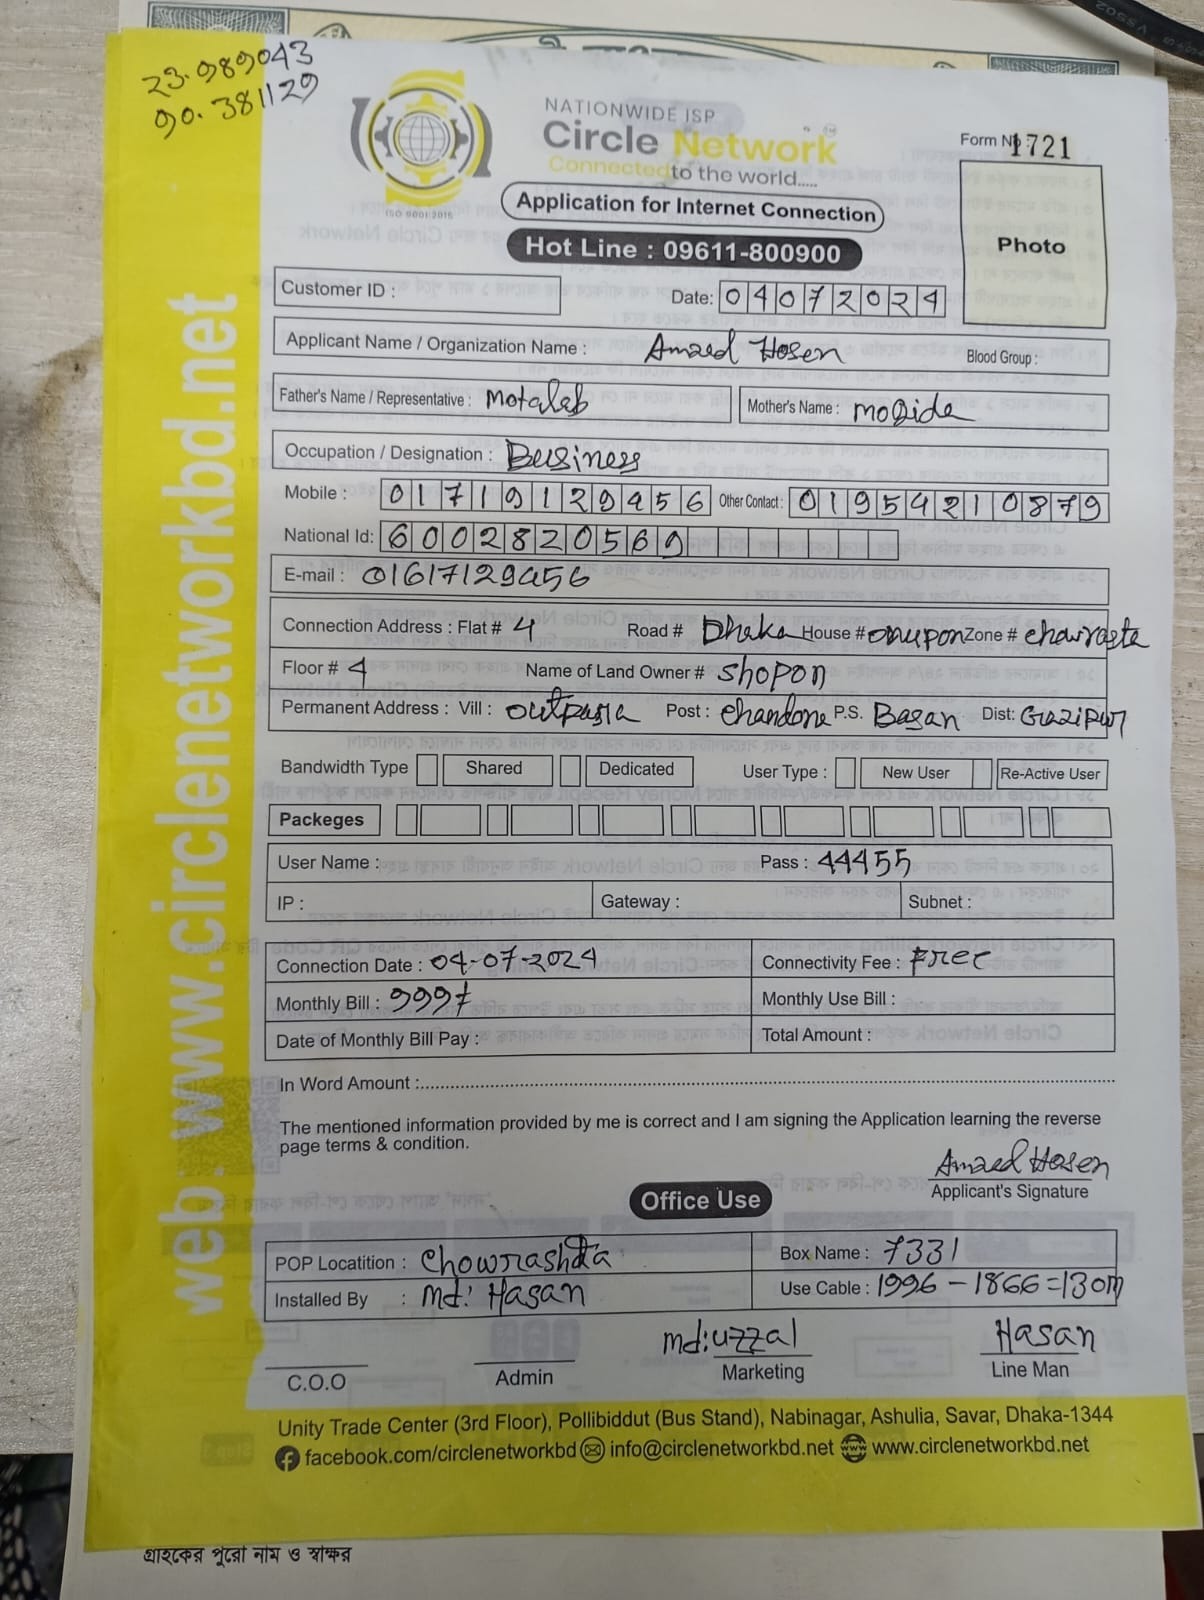 23.989043
90.381129
NATIONWIDE ISP
Circle Network
Connected to the world.....
ISO 9001:2015
Application for Internet Connection
Hot Line : 09611-800900
Form No 1721
Photo
Customer ID :
Date: 04072024
Applicant Name / Organization Name : Amzed Hosen Blood Group :
Father's Name / Representative : Motaleb Mother's Name : moQida
Occupation / Designation : Business
Mobile : 01719129456 Other Contact : 01954210879
National Id: 6002820569
E-mail : 01617129456
Connection Address : Flat # 4 Road # Dhaka House # onupon Zone # chowrasta
Floor # 4 Name of Land Owner # Shopon
Permanent Address : Vill : outpasia Post : Chandona P.S. Basan Dist: Gazipur
Bandwidth Type Shared Dedicated User Type : New User Re-Active User
Packeges
User Name : Pass : 44455
IP : Gateway : Subnet :
Connection Date : 04-07-2024 Connectivity Fee : Free
Monthly Bill : 999৳ Monthly Use Bill :
Date of Monthly Bill Pay : Total Amount :
In Word Amount :
The mentioned information provided by me is correct and I am signing the Application learning the reverse
page terms & condition.
Amzed Hosen
Applicant's Signature
Office Use
POP Locatition : Chowrashta Box Name : 7331
Installed By : Md: Hasan Use Cable : 1996 - 1866 = 130m
md:uzzal Hasan
C.O.O Admin Marketing Line Man
Unity Trade Center (3rd Floor), Pollibiddut (Bus Stand), Nabinagar, Ashulia, Savar, Dhaka-1344
facebook.com/circlenetworkbd info@circlenetworkbd.net www.circlenetworkbd.net
web: www.circlenetworkbd.net
গ্রাহকের পুরো নাম ও স্বাক্ষর